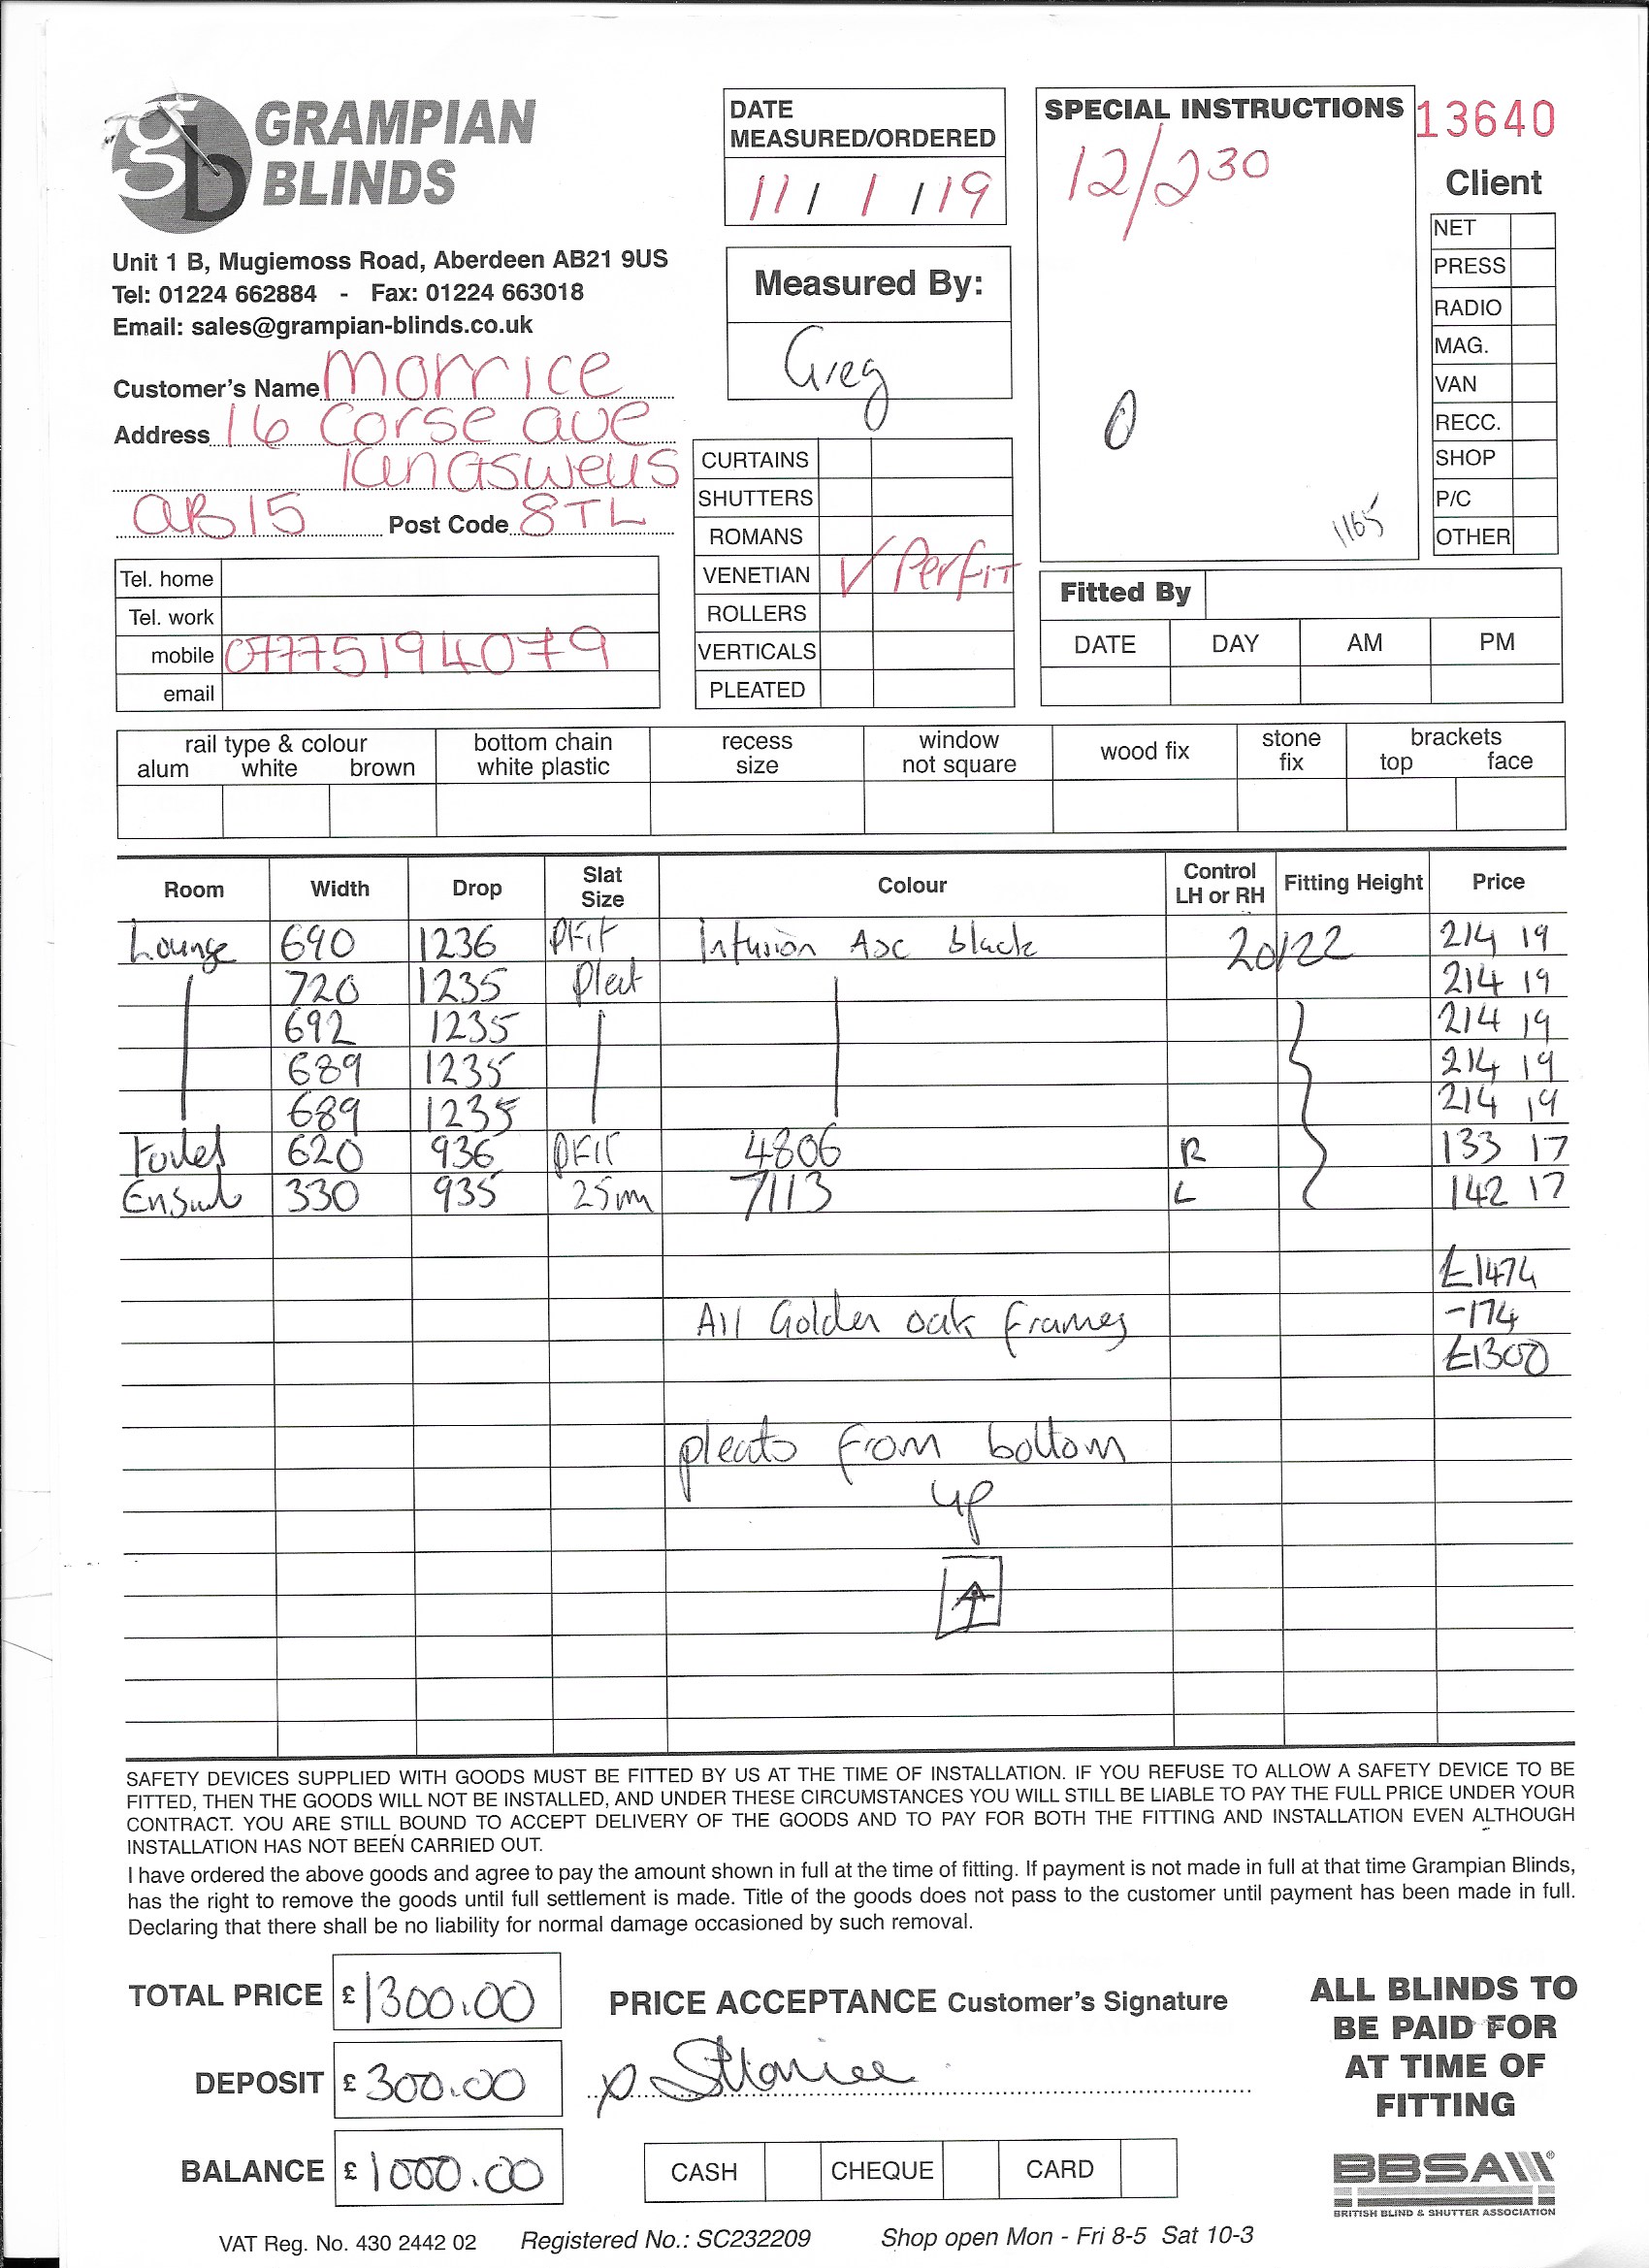 gb GRAMPIAN BLINDS
Unit 1 B, Mugiemoss Road, Aberdeen AB21 9US
Tel: 01224 662884 - Fax: 01224 663018
Email: sales@grampian-blinds.co.uk
Customer's Name Morrice
Address 16 Corse ave
Kingswells
AB15 Post Code 8TL
Tel. home
Tel. work
mobile 07775194079
email
DATE MEASURED/ORDERED
11 / 1 / 19
Measured By:
Greg
CURTAINS
SHUTTERS
ROMANS
VENETIAN ✓ Perfit
ROLLERS
VERTICALS
PLEATED
SPECIAL INSTRUCTIONS
12/230
0
1165
13640
Client
NET
PRESS
RADIO
MAG.
VAN
RECC.
SHOP
P/C
OTHER
Fitted By
DATE DAY AM PM
rail type & colour
alum white brown
bottom chain white plastic
recess size
window not square
wood fix
stone fix
brackets
top face
Room Width Drop Slat Size Colour Control LH or RH Fitting Height Price
Lounge 690 1236 PFit Infusion Asc black 20/22 214 19
720 1235 Pleat 214 19
692 1235 214 19
689 1235 214 19
689 1235 214 19
Toilet 620 936 PFIT 4806 R 133 17
Ensuit 330 935 25mm 7113 L 142 17
£1474
All Golden oak frames -174
£1300
pleats from bottom
up
SAFETY DEVICES SUPPLIED WITH GOODS MUST BE FITTED BY US AT THE TIME OF INSTALLATION. IF YOU REFUSE TO ALLOW A SAFETY DEVICE TO BE
FITTED, THEN THE GOODS WILL NOT BE INSTALLED, AND UNDER THESE CIRCUMSTANCES YOU WILL STILL BE LIABLE TO PAY THE FULL PRICE UNDER YOUR
CONTRACT. YOU ARE STILL BOUND TO ACCEPT DELIVERY OF THE GOODS AND TO PAY FOR BOTH THE FITTING AND INSTALLATION EVEN ALTHOUGH
INSTALLATION HAS NOT BEEN CARRIED OUT.
I have ordered the above goods and agree to pay the amount shown in full at the time of fitting. If payment is not made in full at that time Grampian Blinds,
has the right to remove the goods until full settlement is made. Title of the goods does not pass to the customer until payment has been made in full.
Declaring that there shall be no liability for normal damage occasioned by such removal.
TOTAL PRICE £ 1300.00
DEPOSIT £ 300.00
BALANCE £ 1000.00
PRICE ACCEPTANCE Customer's Signature
p SMorrice
CASH CHEQUE CARD
ALL BLINDS TO
BE PAID FOR
AT TIME OF
FITTING
BBSA
BRITISH BLIND & SHUTTER ASSOCIATION
VAT Reg. No. 430 2442 02 Registered No.: SC232209 Shop open Mon - Fri 8-5 Sat 10-3